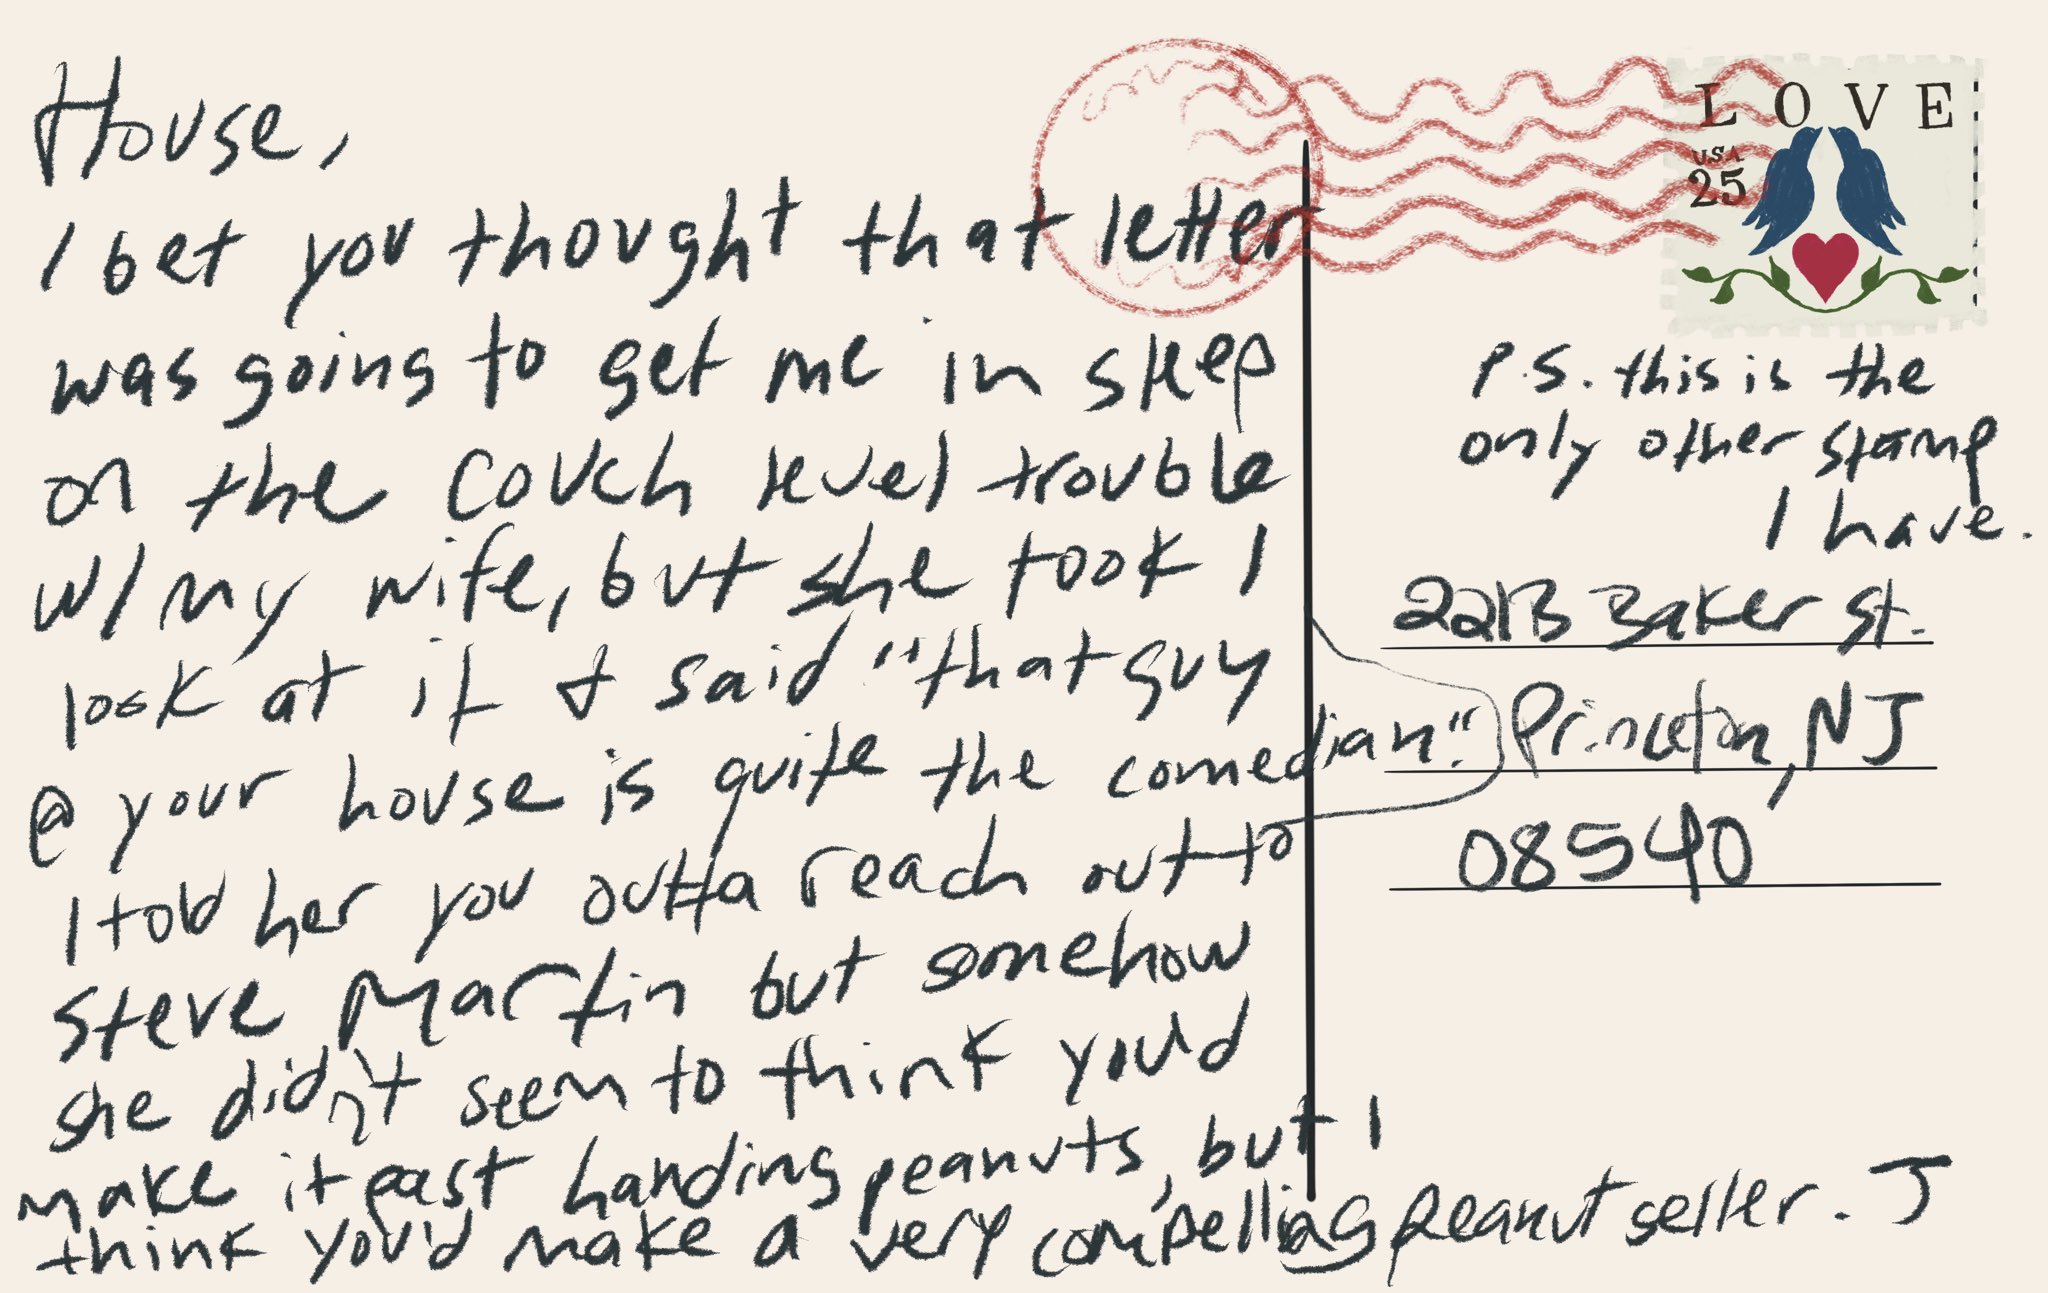 House,
I bet you thought that letter
was going to get me in sleep
on the couch level trouble
w/ my wife, but she took 1
look at it & said "that guy
@ your house is quite the comedian."
I told her you outta reach out to
Steve Martin but somehow
she didn't seem to think you'd
make it past handing peanuts, but I
think you'd make a very compelling peanut seller. J
LOVE
USA
25
P.S. this is the
only other stamp
I have.
221B Baker St.
Princeton, NJ
08540